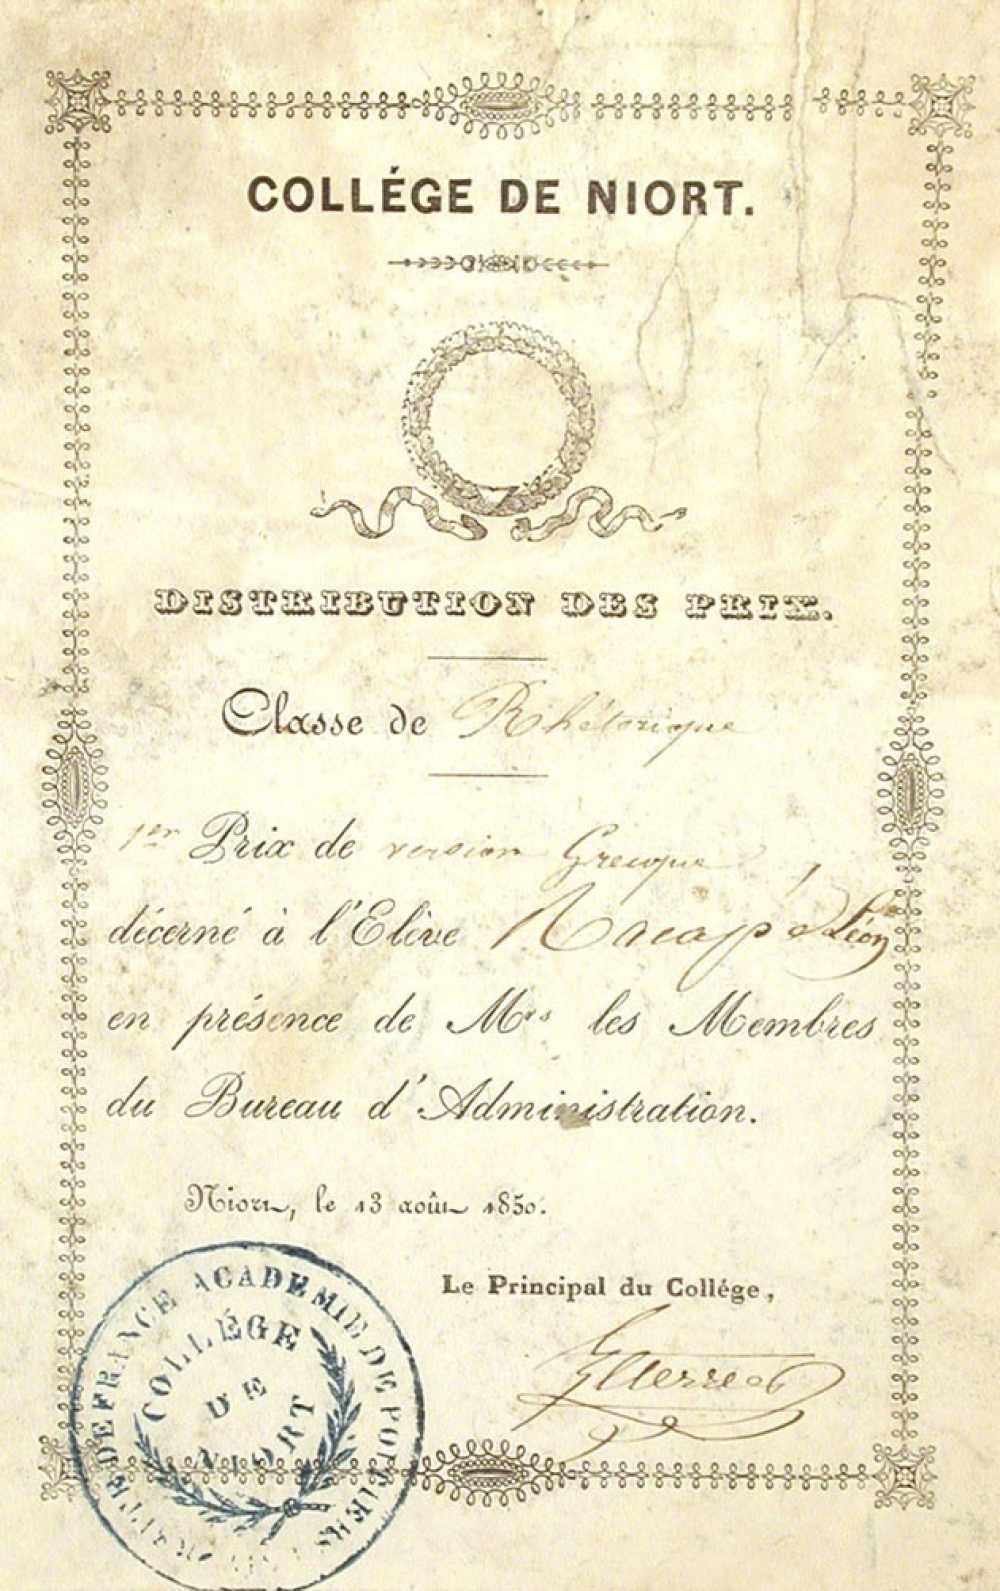 COLLÉGE DE NIORT.
DISTRIBUTION DES PRIX.
Classe de Rhétorique
1er Prix de version Grecque
décerné à l'Elève Léon
en présence de Mrs les Membres
du Bureau d'Administration.
Niort, le 13 août 1850.
Le Principal du Collége,
DE FRANCE ACADEMIE DE POITIERS
COLLÉGE
DE
NIORT